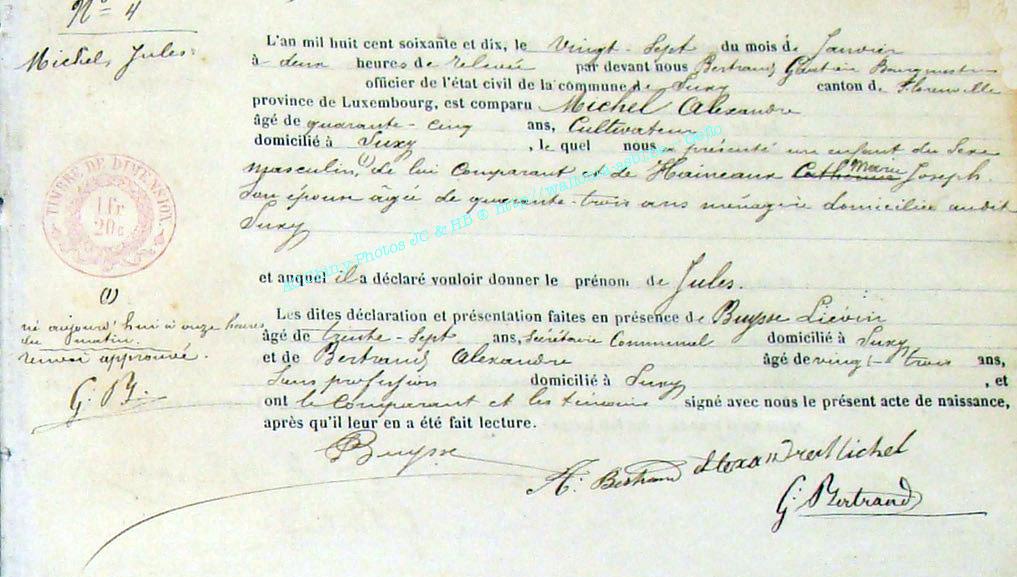 N° = 4
Michel, Jules.
L'an mil huit cent soixante et dix, le vingt-sept du mois de Janvier
à deux heures de relevée par devant nous Bertrand, Bourgmestre
officier de l'état civil de la commune de Suxy canton de Florenville
province de Luxembourg, est comparu Michel Alexandre
âgé de quarante-cinq ans, Cultivateur
domicilié à Suxy, le quel nous a présenté un enfant du Sexe
masculin, (1) de lui comparant et de Haineaux Catherine Marie Joseph.
Son épouse âgée de quarante-trois ans ménagère domiciliée audit
Suxy
et auquel il a déclaré vouloir donner le prénom de Jules.
Les dites déclaration et présentation faites en présence de Buysse Liévin
âgé de trente-sept ans, Secrétaire Communal domicilié à Suxy
et de Bertrand, Alexandre âgé de vingt-trois ans,
Sans profession domicilié à Suxy, et
ont le comparant et les témoins signé avec nous le présent acte de naissance,
après qu'il leur en a été fait lecture.
TIMBRE DE DIMENSION
1 fr
20 c
(1)
né aujourd'hui à onze heures
du matin.
renvoi approuvé.
G. B.
Buysse
A. Bertrand Alexandre Michel
G. Bertrand
Photos JC & HB © http://wallonia.asbl.be